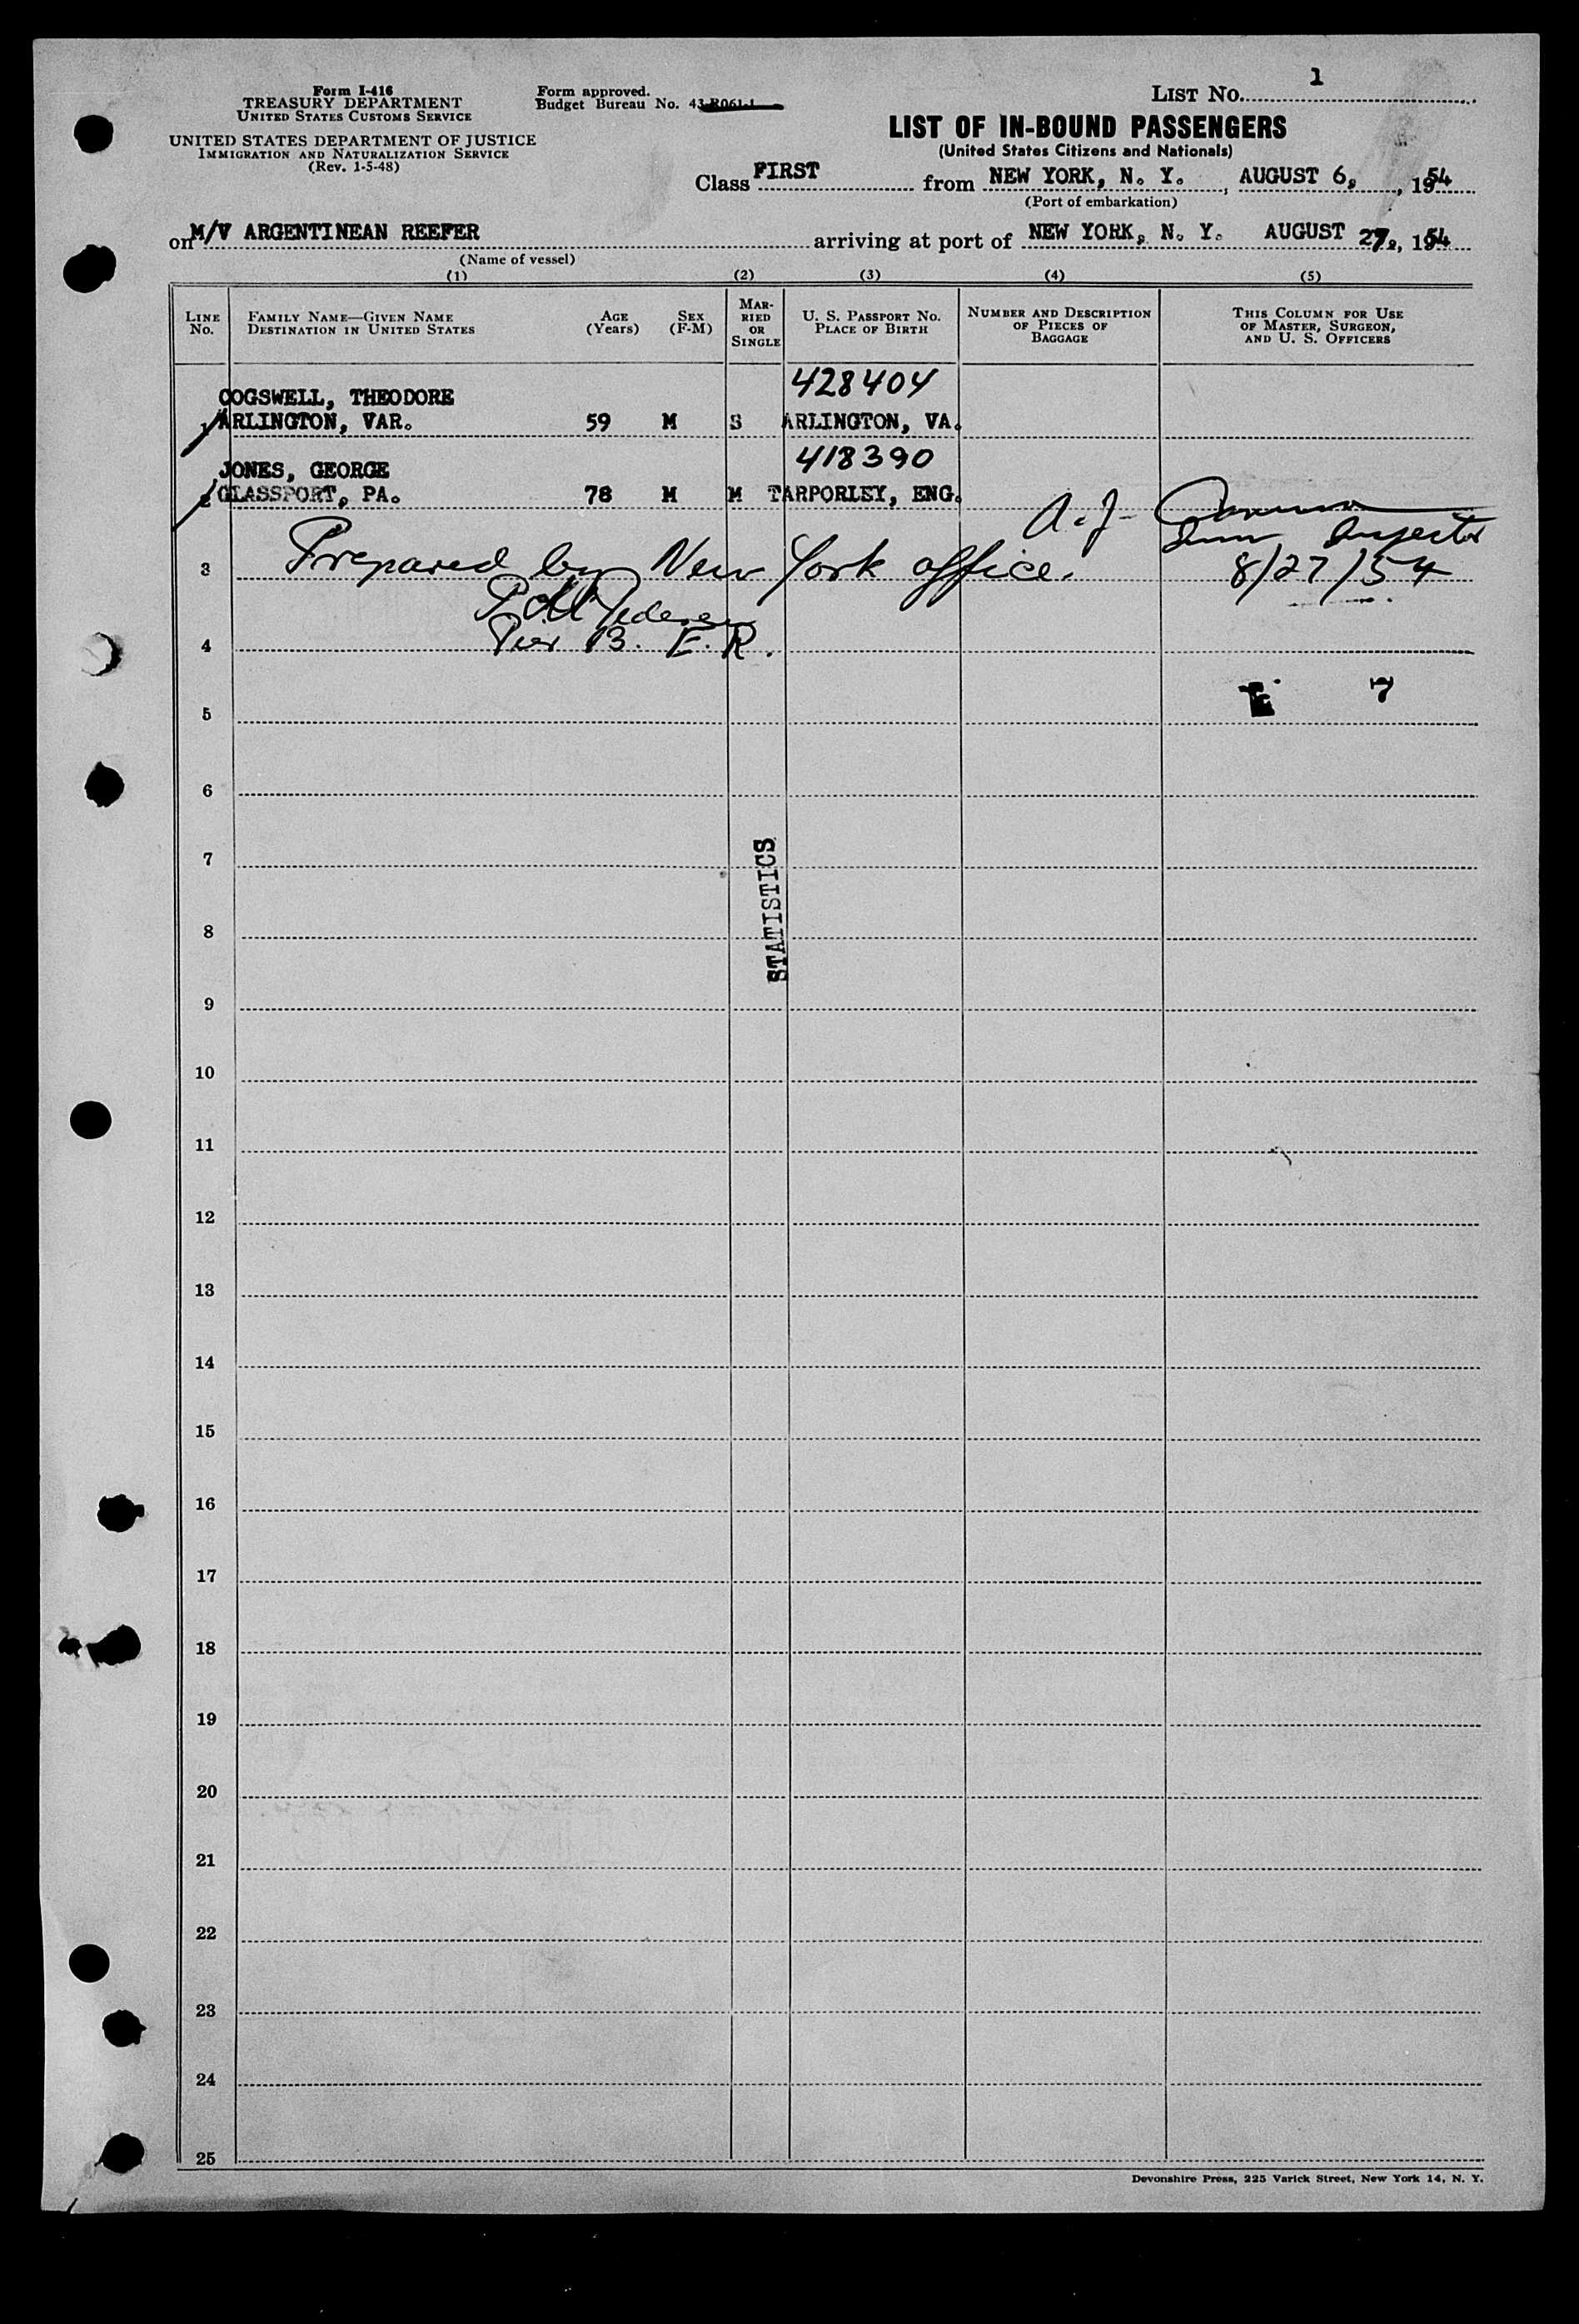 1
Form I-416
TREASURY DEPARTMENT
UNITED STATES CUSTOMS SERVICE
UNITED STATES DEPARTMENT OF JUSTICE
IMMIGRATION AND NATURALIZATION SERVICE
(Rev. 1-5-48)
Form approved.
Budget Bureau No. 43-R061.1
LIST NO.
LIST OF IN-BOUND PASSENGERS
(United States Citizens and Nationals)
Class FIRST from NEW YORK, N. Y., AUGUST 6,, 1954
(Port of embarkation)
on M/V ARGENTINEAN REEFER arriving at port of NEW YORK, N. Y. AUGUST 27., 1954
(Name of vessel)
(1) (2) (3) (4) (5)
LINE No.
FAMILY NAME—GIVEN NAME
DESTINATION IN UNITED STATES
AGE
(Years)
SEX
(F-M)
MAR-
RIED
OR
SINGLE
U. S. PASSPORT NO.
PLACE OF BIRTH
NUMBER AND DESCRIPTION
OF PIECES OF
BAGGAGE
THIS COLUMN FOR USE
OF MASTER, SURGEON,
AND U. S. OFFICERS
COGSWELL, THEODORE 428404
1 ARLINGTON, VAR. 59 M S ARLINGTON, VA.
JONES, GEORGE 418390
2 GLASSPORT, PA. 78 M M TARPORLEY, ENG.
A. J.
Imm Inspector
3 Prepared by New York office. 8/27/54
Pedersen
4 Pier 13. E. R.
5
7
6
7
STATISTICS
8
9
10
11
12
13
14
15
16
17
18
19
20
21
22
23
24
25
Devonshire Press, 225 Varick Street, New York 14, N. Y.